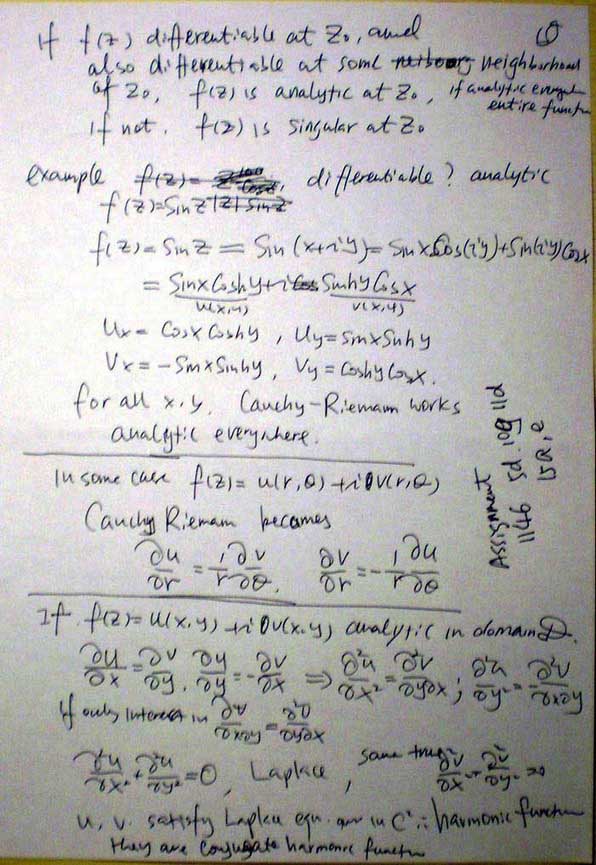 if f(z) differentiable at Z₀, and
also differentiable at some neighborhood
of Z₀, f(z) is analytic at Z₀, if analytic
entire funct
if not. f(z) is singular at Z₀
example differentiable? analytic
f(z)=Sin z
f(z) = Sin z = Sin (x+iy) = Sinx Cos(iy)+Sin(iy)Cosx
= Sinx Coshy + i Sinhy Cosx
u(x,y) v(x,y)
Ux = Cosx Coshy, Uy = Sinx Sinhy
Vx = -Sinx Sinhy, Vy = Coshy Cosx.
for all x.y. Cauchy-Riemann works
analytic everywhere.
Assignment
1146 5d. 10g 11d
In some case f(z) = u(r,θ) + i v(r,θ)
Cauchy Riemann becomes
∂u/∂r = 1/r ∂v/∂θ. ∂v/∂r = -1/r ∂u/∂θ
If f(z) = u(x,y) + i v(x,y) analytic in domain D.
∂u/∂x = ∂v/∂y. ∂u/∂y = -∂v/∂x ⇒ ∂²u/∂x² = ∂²v/∂y∂x; ∂²u/∂y² = ∂²v/∂x∂y
If only interest in ∂²v/∂x∂y = ∂²v/∂y∂x
∂²u/∂x² + ∂²u/∂y² = 0, Laplace, same true ∂²v/∂x + ∂²v/∂y² = 0
u, v. satisfy Laplace equ. in C² ∴ harmonic funct
they are conjugate harmonic funct